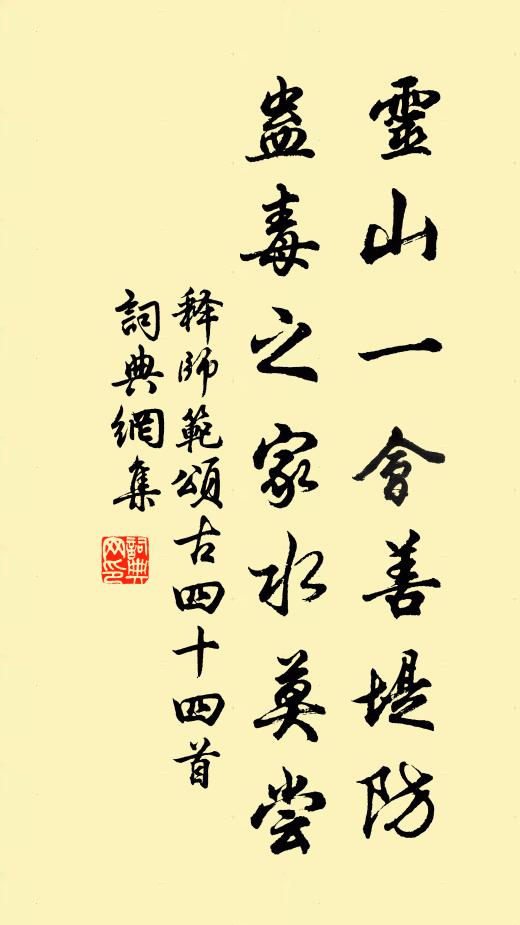 靈山一會善堤防
蠱毒之家水莫尝
释師範頌古四十四首
詞典網集
詞典网印